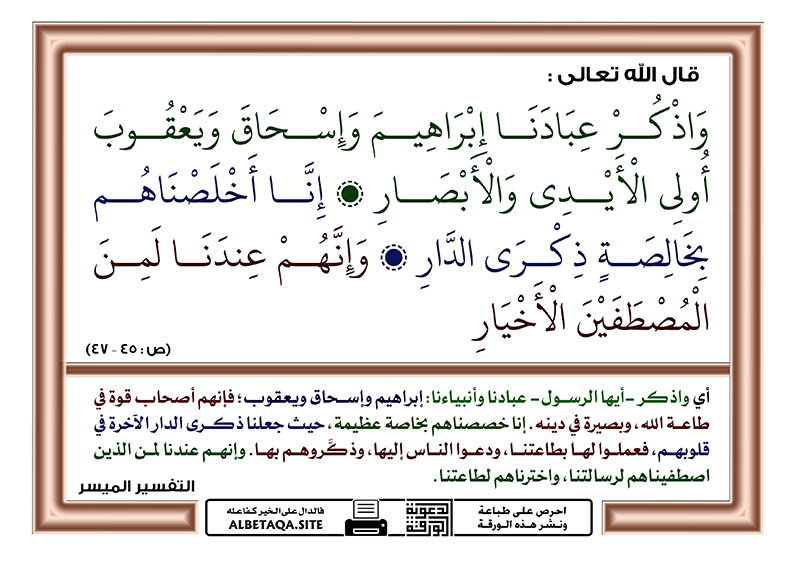 قال الله تعالى :
وَاذْكُرْ عِبَادَنَا إِبْرَاهِيمَ وَإِسْحَاقَ وَيَعْقُوبَ
أُولِي الْأَيْدِي وَالْأَبْصَارِ ۞ إِنَّا أَخْلَصْنَاهُم
بِخَالِصَةٍ ذِكْرَى الدَّارِ ۞ وَإِنَّهُمْ عِندَنَا لَمِنَ
الْمُصْطَفَيْنَ الْأَخْيَارِ
(ص : ٤٥ - ٤٧)
أي واذكر -أيها الرسول- عبادنا وأنبياءنا: إبراهيم وإسحاق ويعقوب؛ فإنهم أصحاب قوة في
طاعة الله، وبصيرة في دينه. إنا خصصناهم بخاصة عظيمة، حيث جعلنا ذكرى الدار الآخرة في
قلوبهم، فعملوا لها بطاعتنا، ودعوا الناس إليها، وذكَّروهم بها. وإنهم عندنا لمن الذين
اصطفيناهم لرسالتنا، واخترناهم لطاعتنا.
التفسير الميسر
احرص على طباعة
ونشر هذه الورقة
الورقة
الدعوية
فالدال على الخير كفاعله
ALBETAQA.SITE